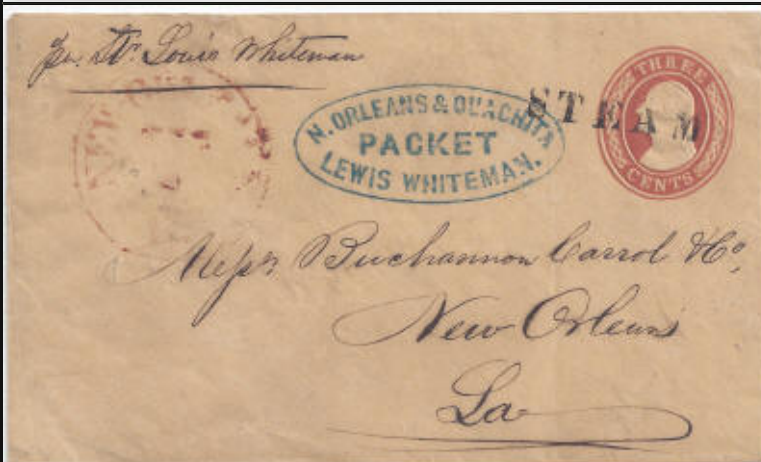 per. Str. Louis Whiteman
N. ORLEANS & OUACHITA
PACKET
LEWIS WHITEMAN.
STEAM
THREE
CENTS
Messrs Buchannon Carrol & Co,
New Orleans
La